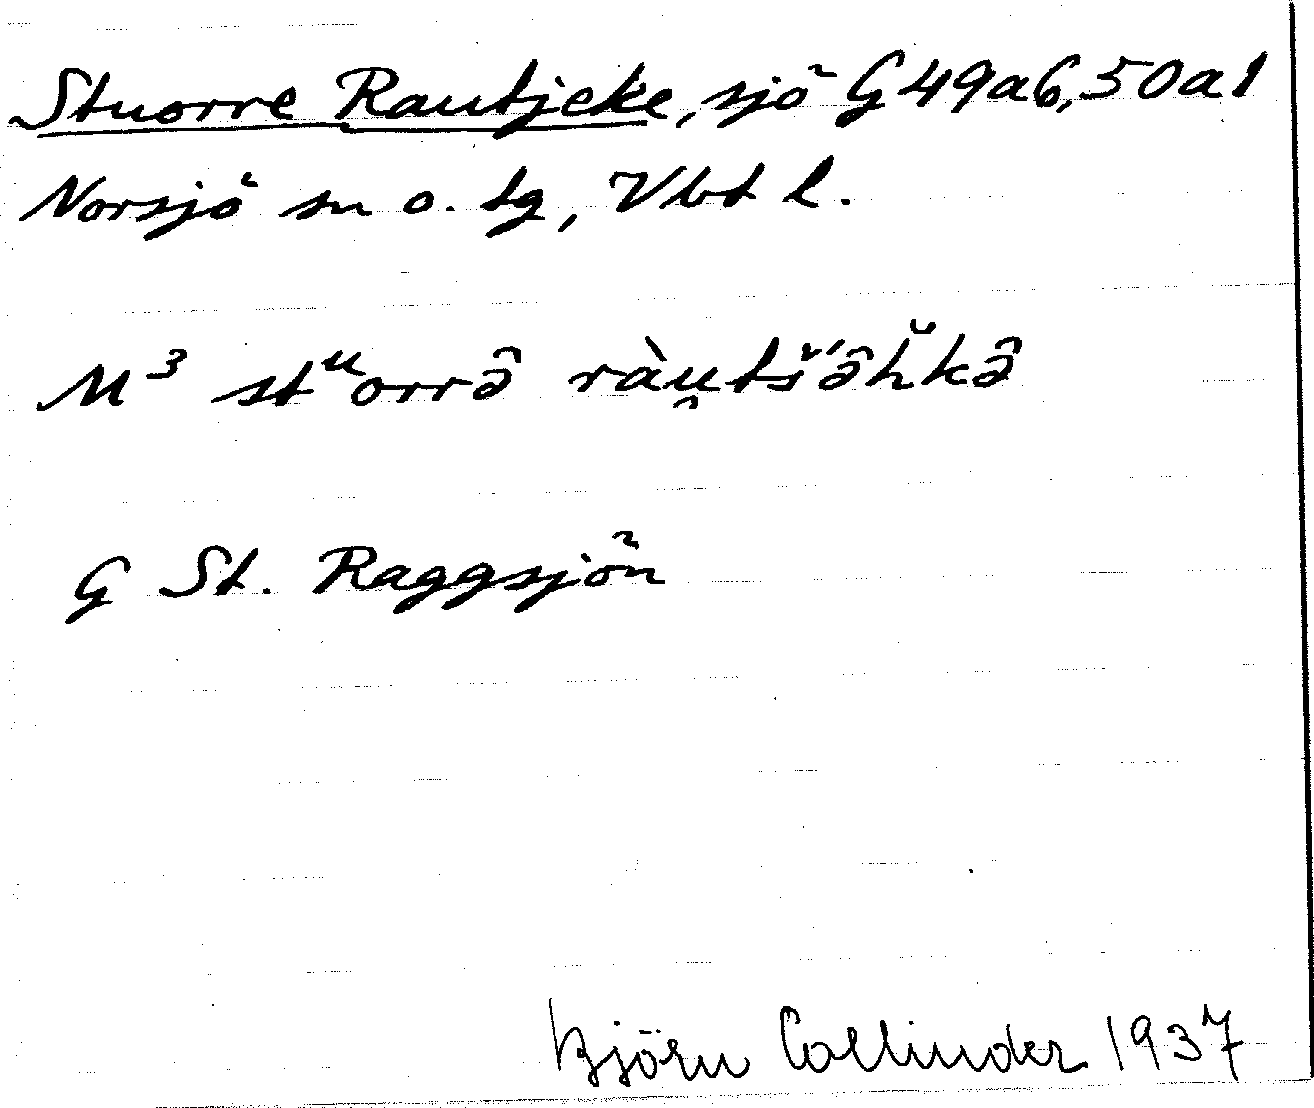 Stuorre Rautjeke, sjö G 49a6, 50a1
Norsjö sn o. tg, Vbt l.
M³ stᵘorrə̂ ràu̯tš́ə̂h̆kə̂
G St. Raggsjön
Björn Collinder 1937